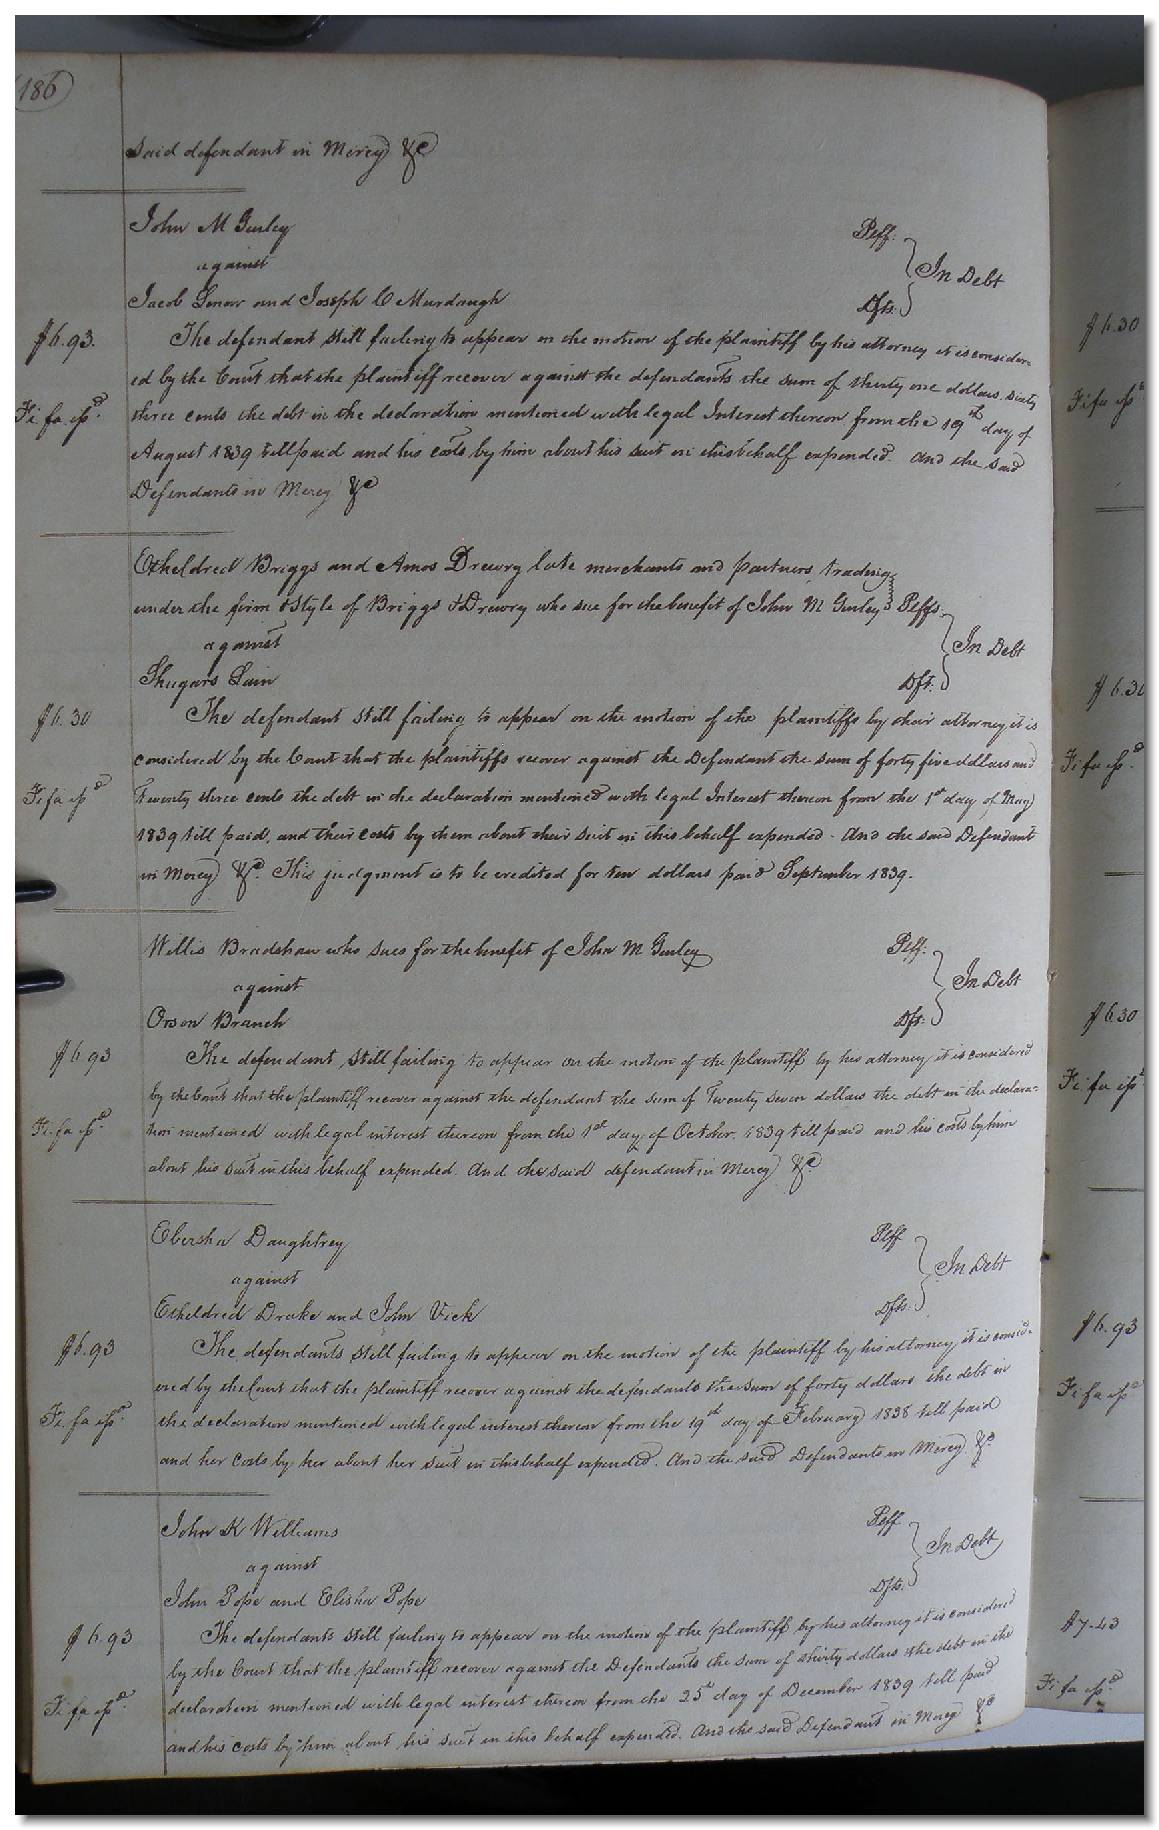 186
said defendant in Mercy &c
John M Gurley Plff.
against
In Debt
Jacob Lenow and Joseph C Murdaugh Dfts.
$6.93. The defendant still failing to appear on the motion of the plaintiff by his attorney it is consider
ed by the Court that the plaintiff recover against the defendants the sum of thirty one dollars sixty
Fi fa issd. three cents the debt in the declaration mentioned with legal Interest thereon from the 19th day of
August 1839 till paid and his costs by him about his suit in this behalf expended. And the said
Defendants in Mercy &c
Etheldred Briggs and Amos Drewry late merchants and partners trading
under the firm & Style of Briggs & Drewry who sue for the benefit of John M Gurley Plffs.
against
In Debt
Shugars Lain Dft.
$6.30 The defendant still failing to appear on the motion of the plaintiffs by their attorney it is
considered by the Court that the plaintiffs recover against the Defendant the sum of forty five dollars and
Fi fa issd Twenty three cents the debt in the declaration mentioned with legal Interest thereon from the 1st day of May
1839 till paid, and their costs by them about their suit in this behalf expended. And the said Defendant
in Mercy &c. This judgment is to be credited for ten dollars paid September 1839.
Willis Bradshaw who sues for the benefit of John M Gurley Plff.
against
In Debt
Orson Branch Dft.
$6.93 The defendant still failing to appear on the motion of the plaintiff by his attorney it is considered
by the Court that the plaintiff recover against the defendant the sum of Twenty seven dollars the debt in the declara-
Fi fa issd. tion mentioned with legal interest thereon from the 1st day of October 1839 till paid and his costs by him
about his suit in this behalf expended. And the said defendant in Mercy &c.
Ebersha Daughtrey Plff
against
In Debt
Etheldred Drake and John Vick Dfts.
$6.93 The defendants still failing to appear on the motion of the plaintiff by his attorney it is consid-
ered by the Court that the plaintiff recover against the defendants the sum of forty dollars the debt in
Fi fa issd. the declaration mentioned with legal interest thereon from the 19th day of February 1838 till paid
and her costs by her about her suit in this behalf expended. And the said Defendants in Mercy &c.
John K Williams Plff
against
In Debt
John Pope and Elisha Pope Dfts.
$6.93 The defendants still failing to appear on the motion of the plaintiff by his attorney it is considered
by the Court that the plaintiff recover against the Defendants the sum of thirty dollars the debt in the
Fi fa issd. declaration mentioned with legal interest thereon from the 25th day of December 1839 till paid
and his costs by him about his suit in this behalf expended. And the said Defendant in Mercy &c
$6.30
Fi fa issd
$6.30
Fi fa issd.
$6.30
Fi fa issd
$6.93
Fi fa issd
$7.43
Fi fa issd.